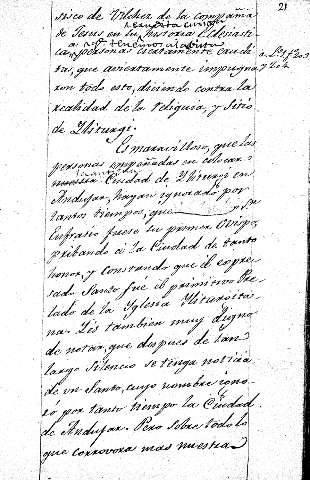 21
sico de Vilchez de la Compañia
de Jesus en su historia Eclesiasti-
ca, personas exactamente erudi-
tas, que aviertamente impugna
ron todo esto, diciendo contra la
realidad de la Reliquia, y Sitio
de Yliturgi.
Es maravilloso, que las
personas empeñadas en colocar
Ciudad de Yliturgi en
Andujar, hayan ignorado por
tantos tiempos, que
Eufrasio fuese su primer Ovispo,
pribando á la Ciudad de tanto
honor, y constando que el expre-
sado Santo fué el primitivo Pre
lado de la Yglesia Yliturgita
na. Es tambien muy digno
de notar, que despues de tan
largo silencio se tenga noticia
de un Santo, cuyo nombre igno-
ró por tanto tiempo la Ciudad
de Andujar. Pero sobre todo lo
que corrovora mas nuestra